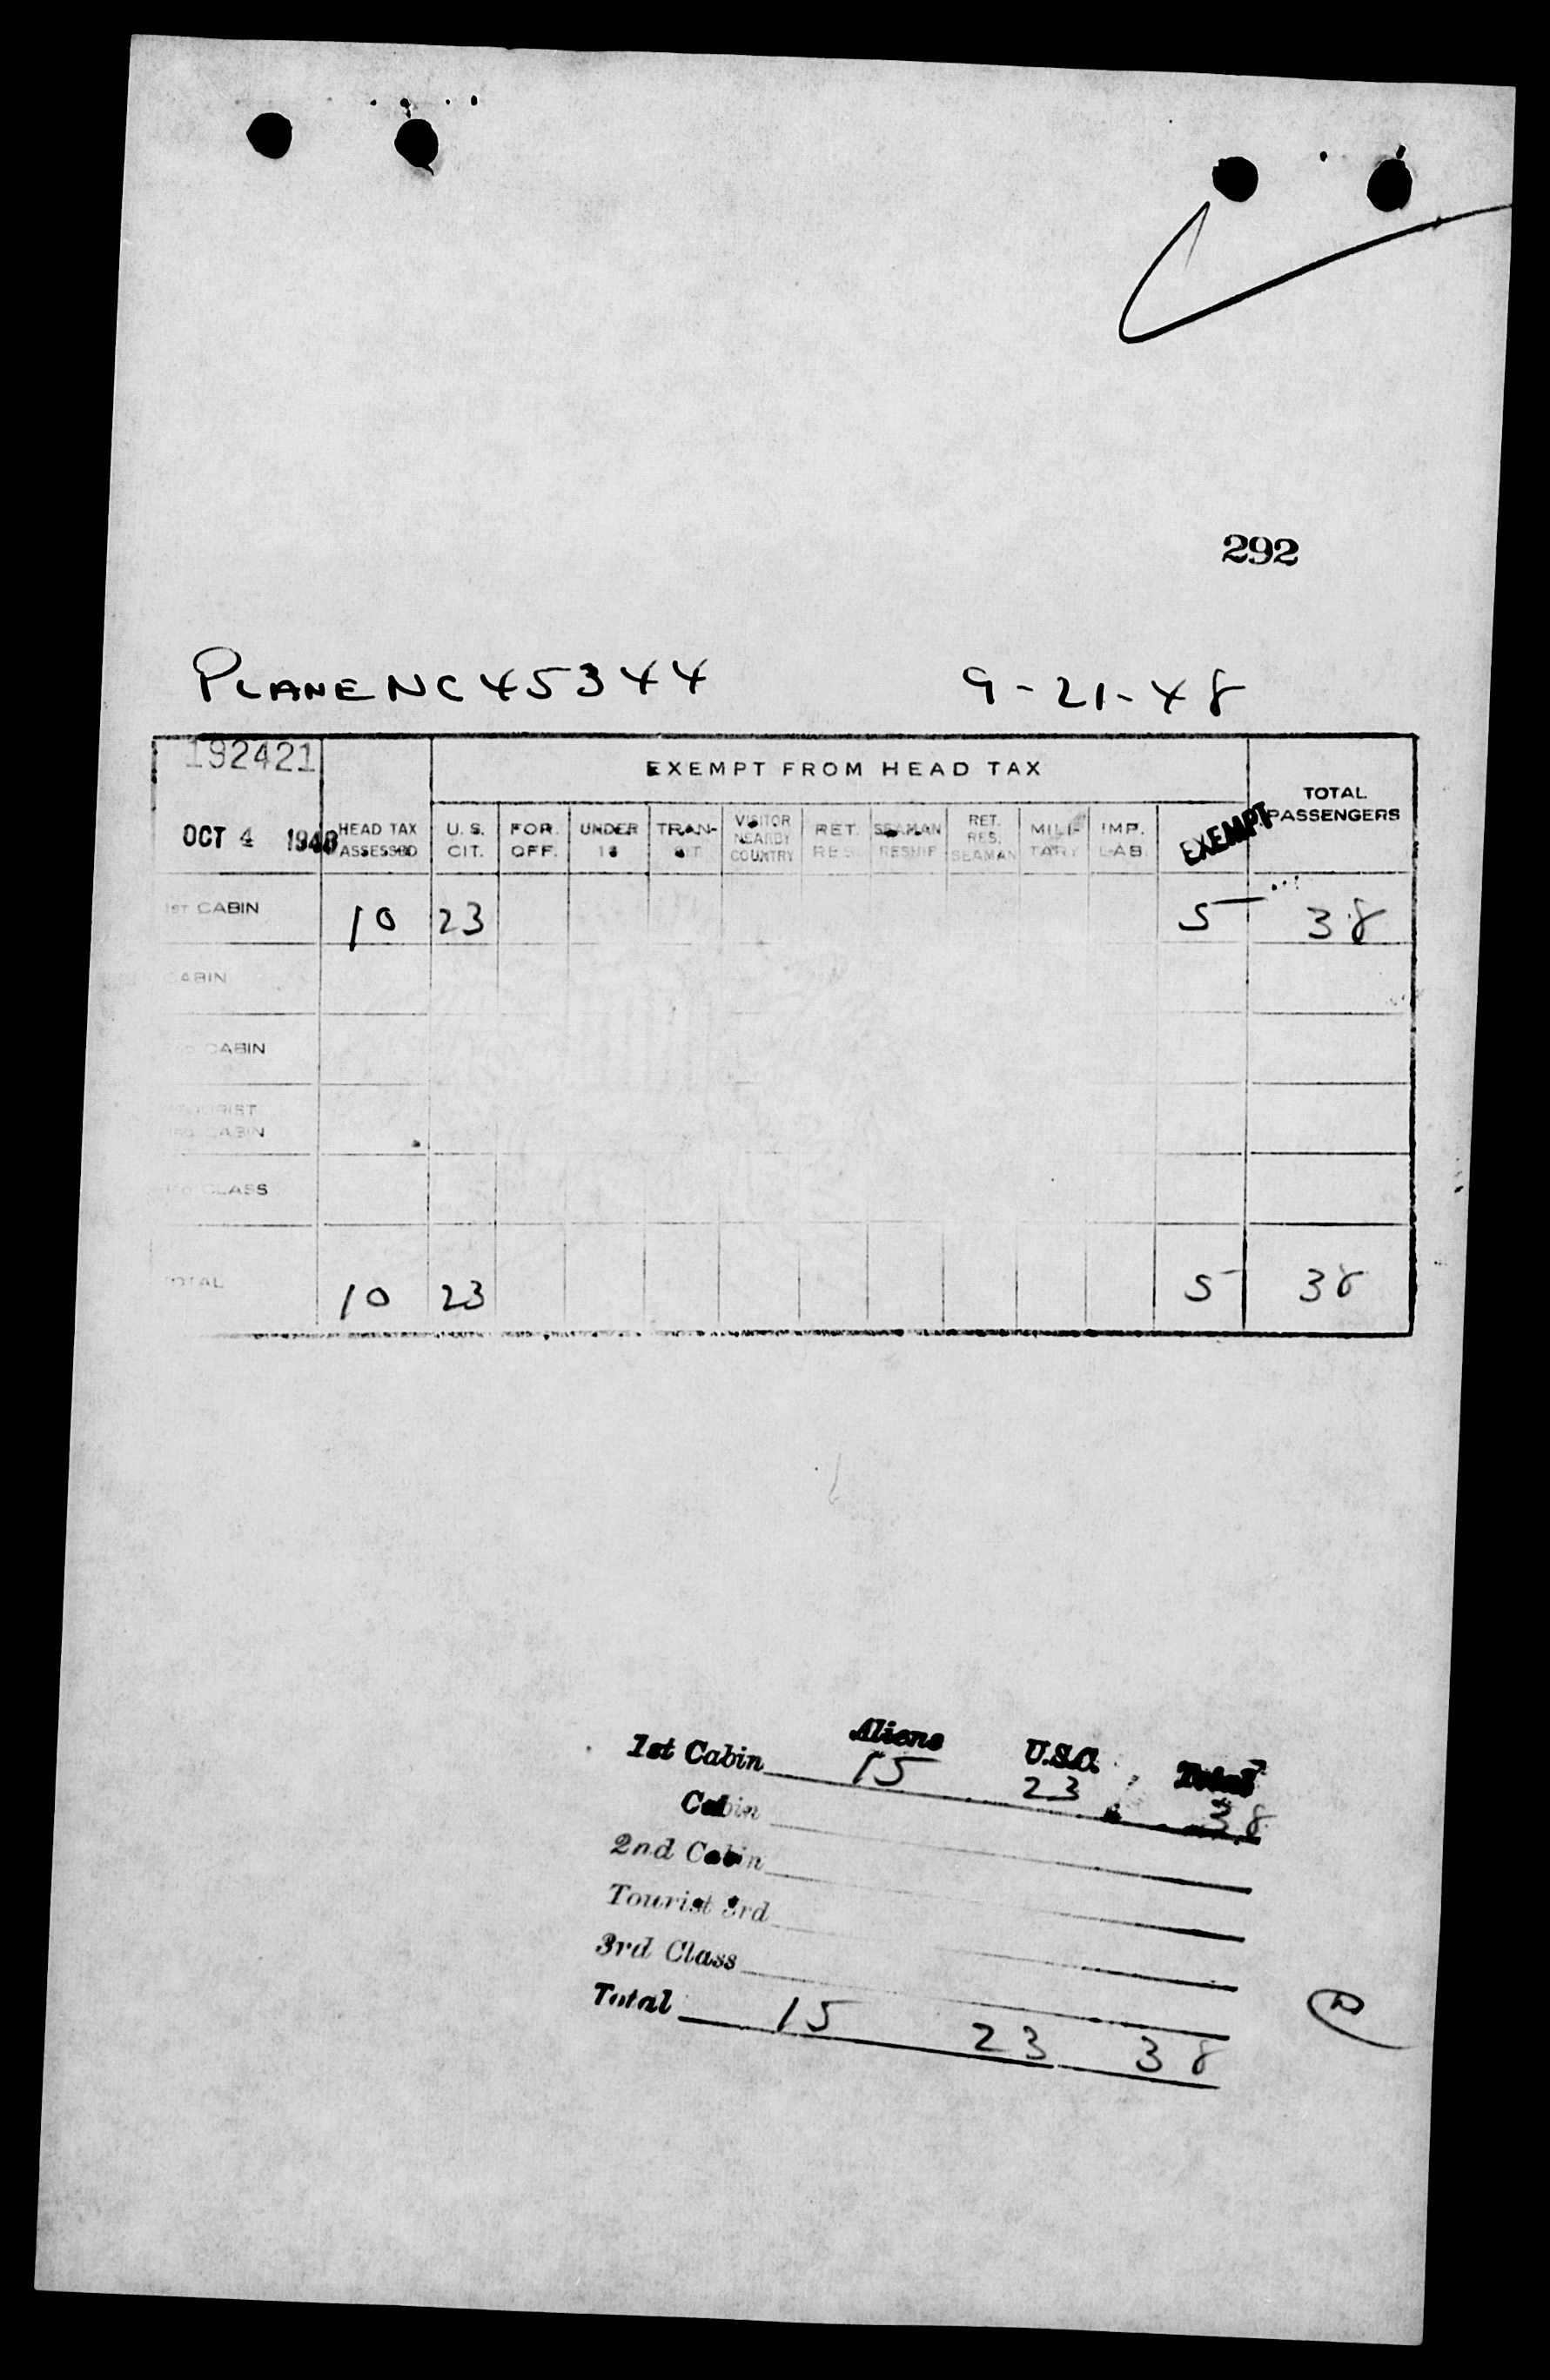 292
PLANE NC 45344 9-21-48
192421
EXEMPT FROM HEAD TAX
TOTAL PASSENGERS
OCT 4 1948
HEAD TAX ASSESSED
U. S. CIT.
FOR. OFF.
UNDER
TRAN-SIT
VISITOR NEARBY COUNTRY
RET. RES.
SEAMAN RESHIP
RET. RES. SEAMAN
MILI-TARY
IMP. LAB.
EXEMPT
1ST CABIN 10 23 5 38
CABIN
CABIN
TOURIST
3RD CABIN
CLASS
TOTAL 10 23 5 38
Aliens U.S.C. Total
1st Cabin 15 23 38
Cabin
2nd Cabin
Tourist 3rd
3rd Class
Total 15 23 38